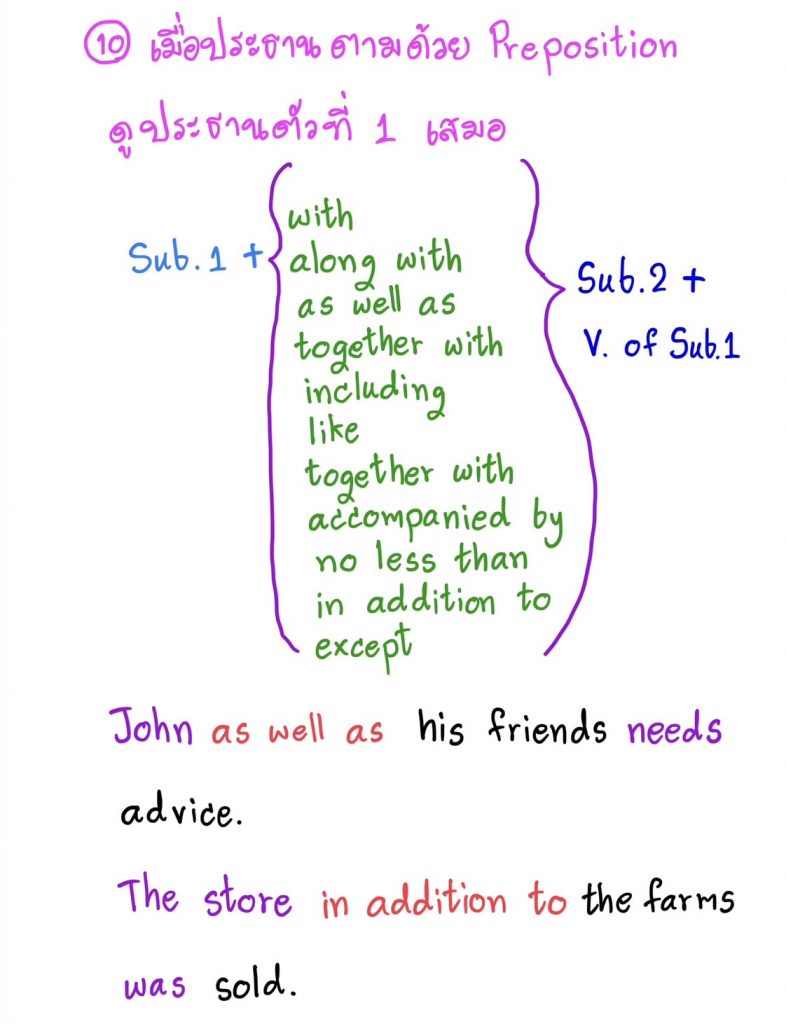 10 เมื่อประธานตามด้วย Preposition
ดูประธานตัวที่ 1 เสมอ
Sub.1 +
with
along with
as well as
together with
including
like
together with
accompanied by
no less than
in addition to
except
Sub.2 +
V. of Sub.1
John as well as his friends needs
advice.
The store in addition to the farms
was sold.